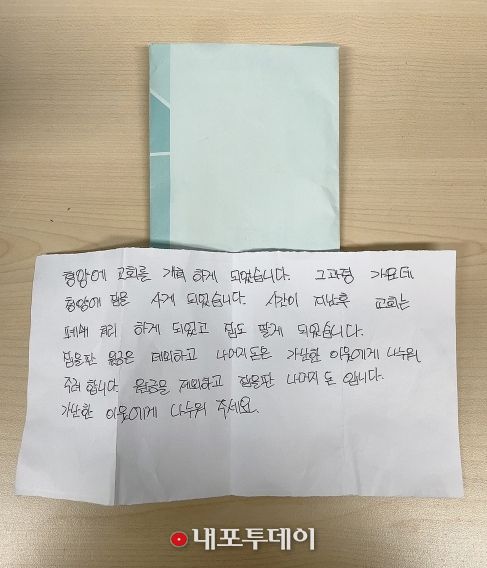 청양에 교회를 개척 하게 되었습니다. 그과정 가운데
청양에 집은 사게 되었습니다. 시간이 지난후 교회는
폐쇄 처리 하게 되었고 집도 팔게 되었습니다.
집을판 원금은 제외하고 나머지 돈은 가난한 이웃에게 나누워
주려 합니다. 원금을 제외하고 집을판 나머지 돈 입니다.
가난한 이웃에게 나누워 주세요.
내포투데이